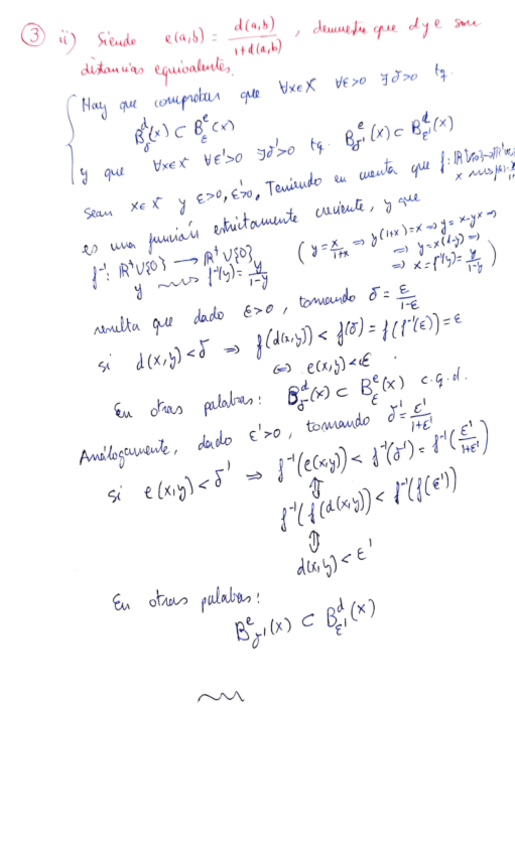 ③ ii) Siendo e(a,b) = d(a,b)/(1+d(a,b)), demuestra que d y e son
distancias equivalentes.
Hay que comprobar que ∀x∈X ∀ε>0 ∃δ>0 tq.
B^d_δ(x) ⊂ B^e_ε(x)
y que ∀x∈X ∀ε'>0 ∃δ'>0 tq. B^e_δ'(x) ⊂ B^d_ε'(x)
Sean x∈X y ε>0, ε'>0. Teniendo en cuenta que f: ℝ⁺∪{0}→
es una función estrictamente creciente, y que
f⁻¹: ℝ⁺∪{0} → ℝ⁺∪{0}
y ⟿ f⁻¹(y) = y/(1-y)
(y = x/(1+x) ⇒ y(1+x) = x ⇒ y = x-yx ⇒
⇒ y = x(1-y) ⇒
⇒ x = f⁻¹(y) = y/(1-y))
resulta que dado ε>0, tomando δ = ε/(1-ε)
si d(x,y)<δ ⇒ f(d(x,y)) < f(δ) = f(f⁻¹(ε)) = ε
⇔ e(x,y)<ε.
En otras palabras: B^d_δ(x) ⊂ B^e_ε(x) c.q.d.
Análogamente, dado ε'>0, tomando δ' = ε'/(1+ε')
si e(x,y)<δ' ⇒ f⁻¹(e(x,y)) < f⁻¹(δ') = f⁻¹(ε'/(1+ε'))
⇕
f⁻¹(f(d(x,y))) < f⁻¹(f(ε'))
⇕
d(x,y) < ε'
En otras palabras:
B^e_δ'(x) ⊂ B^d_ε'(x)